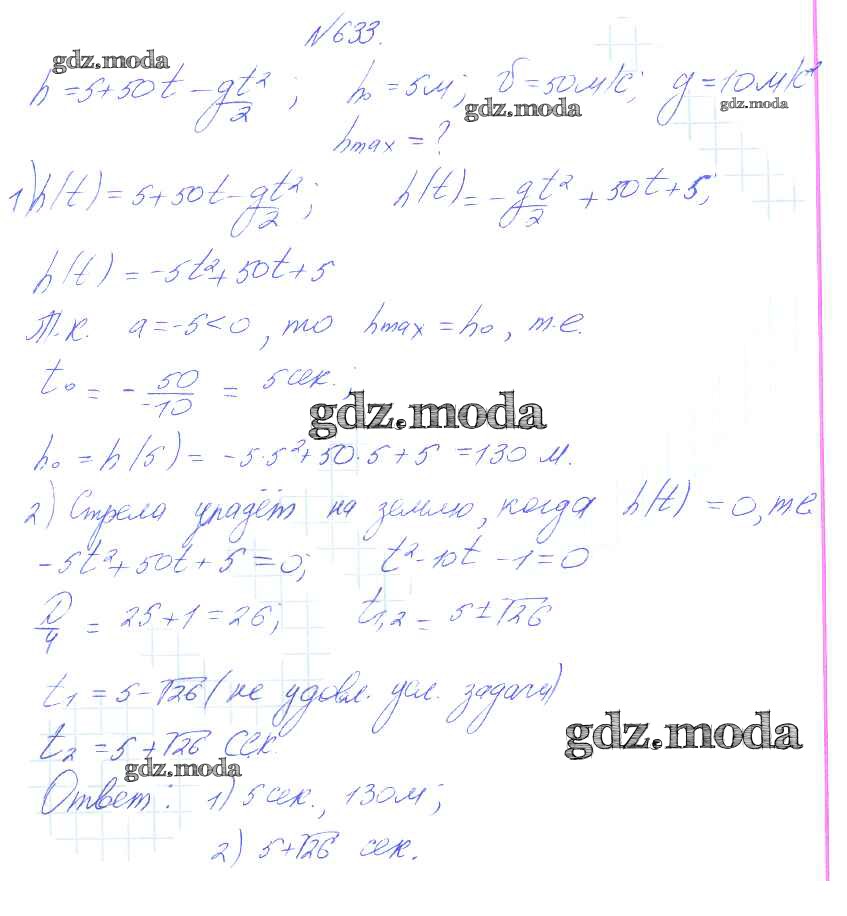 №633.
gdz.moda
h = 5 + 50t - gt²/2 ; h₀ = 5м; υ = 50м/с; g = 10м/с²
gdz.moda
gdz.moda
hmax = ?
1) h(t) = 5 + 50t - gt²/2; h(t) = -gt²/2 + 50t + 5;
h(t) = -5t² + 50t + 5
Т.к. a = -5 < 0, то hmax = h₀, т.е.
t₀ = - 50/-10 = 5 сек.;
gdz.moda
h₀ = h(5) = -5·5² + 50·5 + 5 = 130 м.
2) Стрела упадёт на землю, когда h(t) = 0, т.е
-5t² + 50t + 5 = 0; t² - 10t - 1 = 0
D/4 = 25 + 1 = 26; t₁,₂ = 5 ± √26
t₁ = 5 - √26 (не удовл. усл. задачи)
t₂ = 5 + √26 сек.
gdz.moda
gdz.moda
Ответ: 1) 5 сек., 130м;
2) 5 + √26 сек.